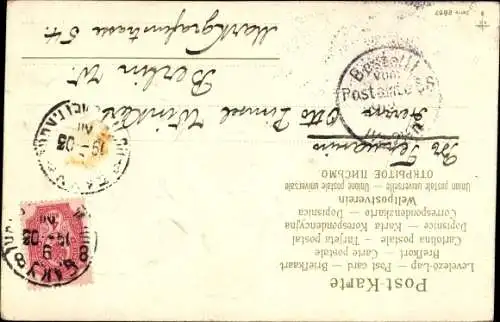 Post-Karte
Levelező-Lap — Post card — Briefkaart
Brefkort — Carte postale
Cartolina postale — Tarjeta postal
Dopisnica — Karta Korespondencyjna
Correspondenzkarte — Dopisnice
Weltpostverein
Union postale universelle — Unione postale universale
ОТКРЫТОЕ ПИСЬМО
Herrn Otto Pinsel Winkler
Berlin W.
Markgrafenstrasse 54.
Bestellt
vom
Postamte
БАКУ
БАКУ